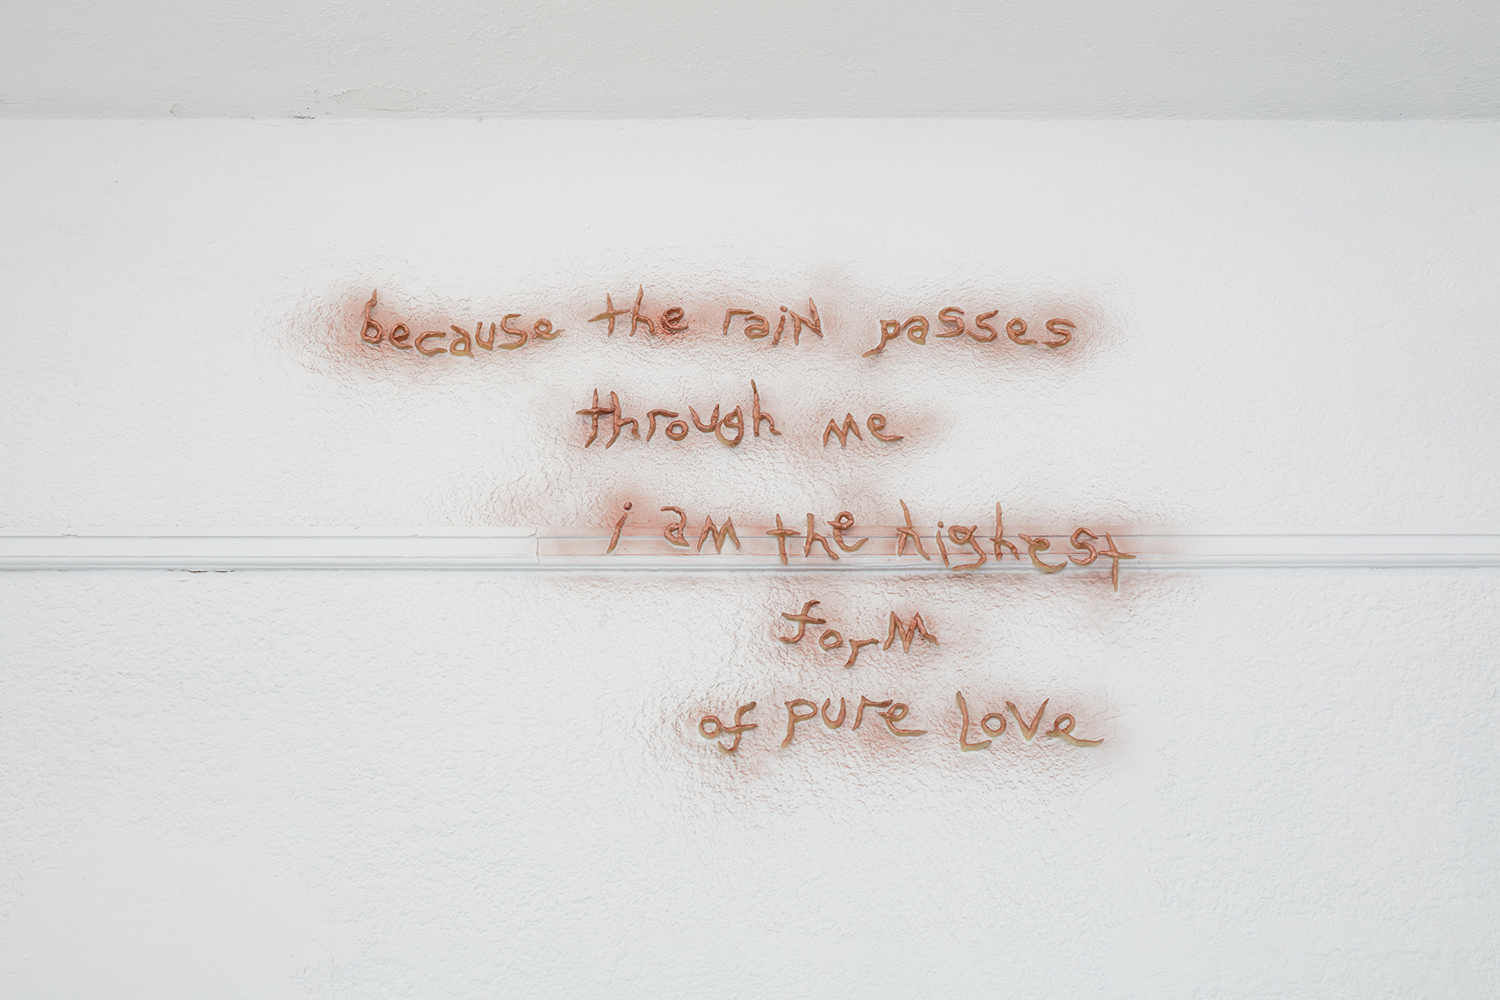 because the raiN passes
through me
i aM the highest
forM
of pure Love